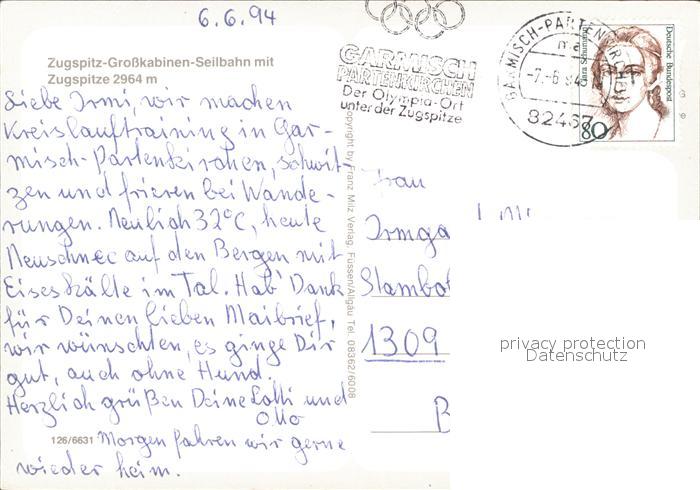 6.6.94
Zugspitz-Großkabinen-Seilbahn mit
Zugspitze 2964 m
Liebe Irmi, wir machen
Kreislauftraining in Gar-
misch-Partenkirchen, schwit-
zen und frieren bei Wande-
rungen. Neulich 32°C, heute
Neuschnee auf den Bergen mit
Eiseskälte im Tal. Hab' Dank
für Deinen lieben Maibrief,
wir wünschten, es ginge Dir
gut, auch ohne Hund.
Herzlich grüßen Deine Lotti und
Otto
126/6631
Morgen fahren wir gerne
wieder heim.
Copyright by Franz Milz Verlag, Füssen/Allgäu Tel. 08362/6008
GARMISCH
PARTENKIRCHEN
Der Olympia-Ort
unter der Zugspitze
GARMISCH-PARTENKIRCHEN
ma
-7.-6.94
82467
Clara Schumann
Deutsche Bundespost
80
Frau
Irmga
Stambo
1309
B
privacy protection
Datenschutz